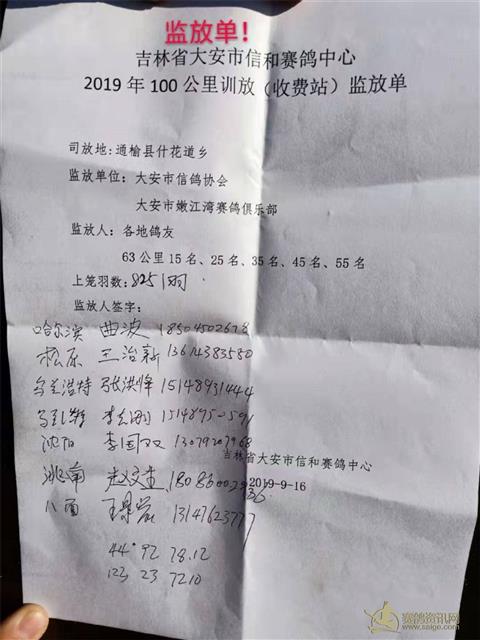 监放单!
吉林省大安市信和赛鸽中心
2019年100公里训放（收费站）监放单
司放地：通榆县什花道乡
监放单位：大安市信鸽协会
大安市嫩江湾赛鸽俱乐部
监放人：各地鸽友
63公里15名、25名、35名、45名、55名
上笼羽数：8251羽
监放人签字：
哈尔滨 曲波 18504502678
松原 王治新 13614383580
乌兰浩特 张洪峰 15148931444
李 1514895
沈阳 李国双 13079207968
吉林省大安市信和赛鸽中心
洮南
2019-9-16
八面 13147623777
44°92 78.12
123 23 7210
赛鸽资讯网
www.saige.com